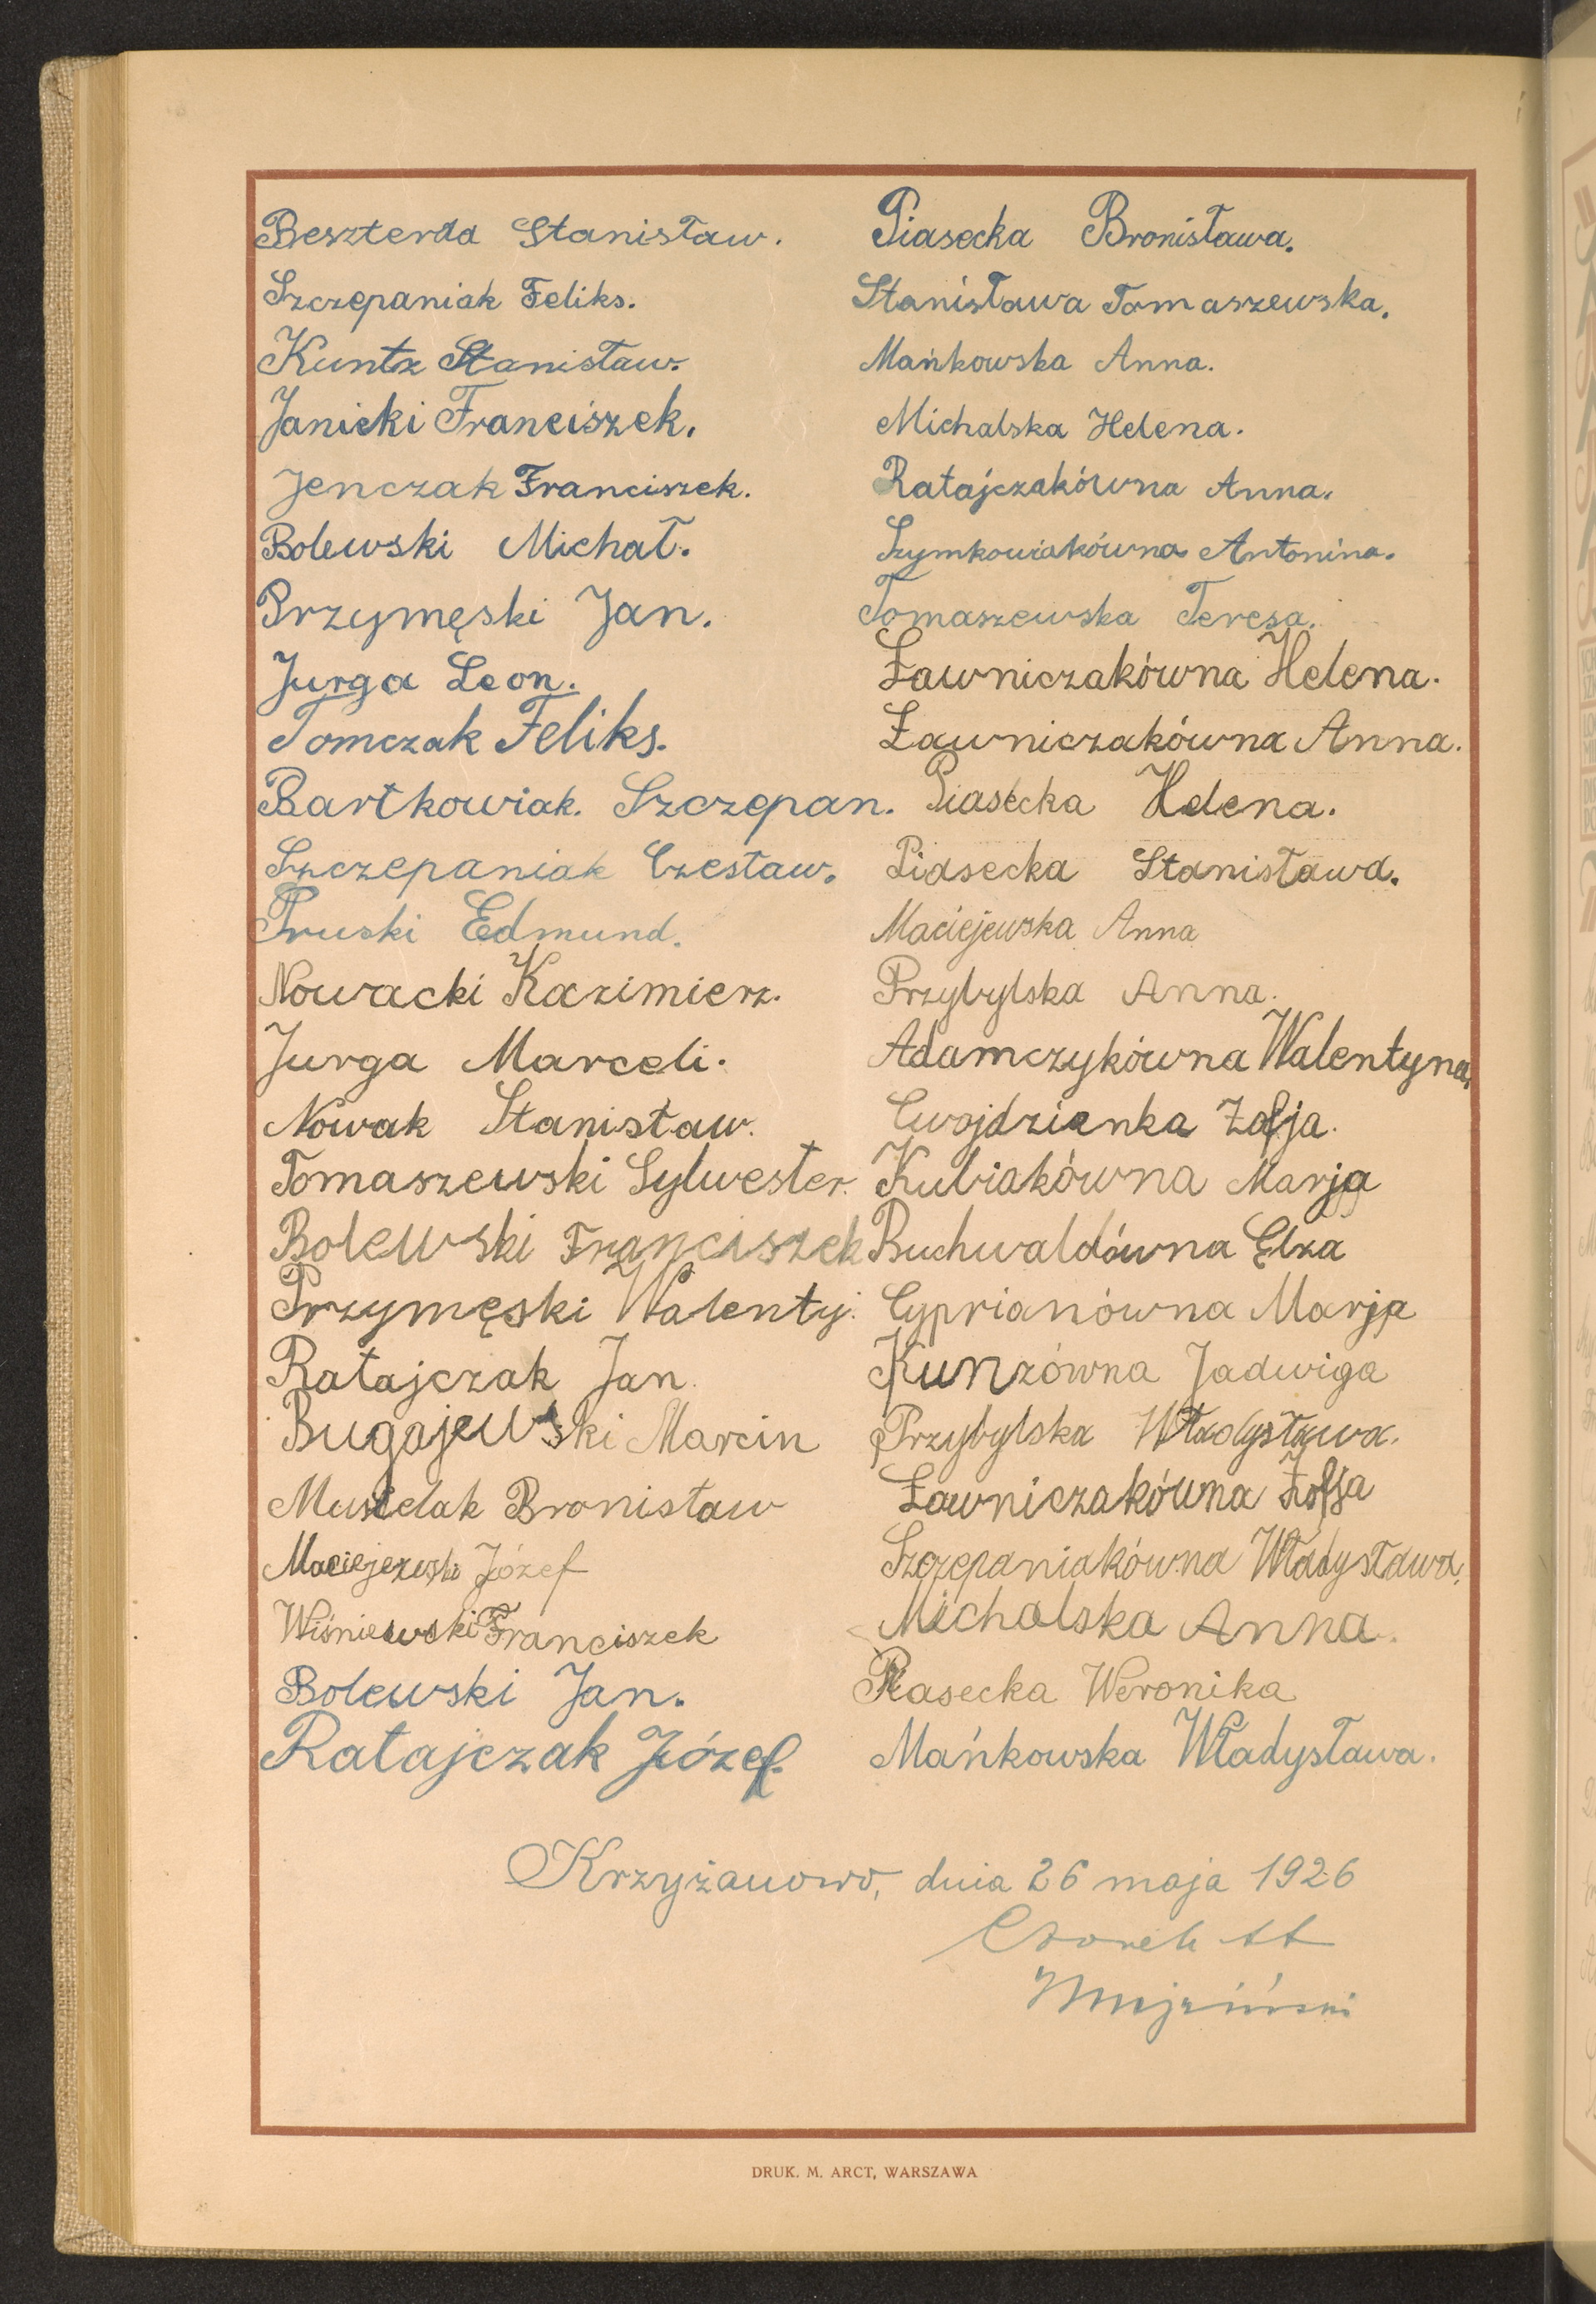 Beszterda Stanisław.
Szczepaniak Feliks.
Kuntz Stanisław.
Janicki Franciszek.
Jenczak Franciszek.
Bolewski Michał.
Przymęski Jan.
Jurga Leon.
Tomczak Feliks.
Bartkowiak. Szczepan.
Szczepaniak Czesław.
Pruski Edmund.
Nowacki Kazimierz.
Jurga Marceli.
Nowak Stanisław.
Tomaszewski Sylwester.
Bolewski Franciszek
Przymęski Walenty.
Ratajczak Jan.
Bugajewski Marcin
Musielak Bronisław
Maciejewski Józef
Wiśniewski Franciszek
Bolewski Jan.
Ratajczak Józef.
Piasecka Bronisława.
Stanisława Tomaszewska.
Mańkowska Anna.
Michalska Helena.
Ratajczakówna Anna.
Szymkowiakówna Antonina.
Tomaszewska Teresa.
Ławniczakówna Helena.
Ławniczakówna Anna.
Piasecka Helena.
Piasecka Stanisława.
Maciejewska Anna
Przybylska Anna.
Adamczykówna Walentyna.
Cwojdzianka Zofja.
Kubiakówna Marja
Buchwaldówna Elza
Cyprianówna Marja
Kunzówna Jadwiga
Przybylska Władysława.
Ławniczakówna Zofja
Szczepaniakówna Władysława.
Michalska Anna.
Piasecka Weronika
Mańkowska Władysława.
Krzyżanowo, dnia 26 maja 1926
DRUK. M. ARCT, WARSZAWA